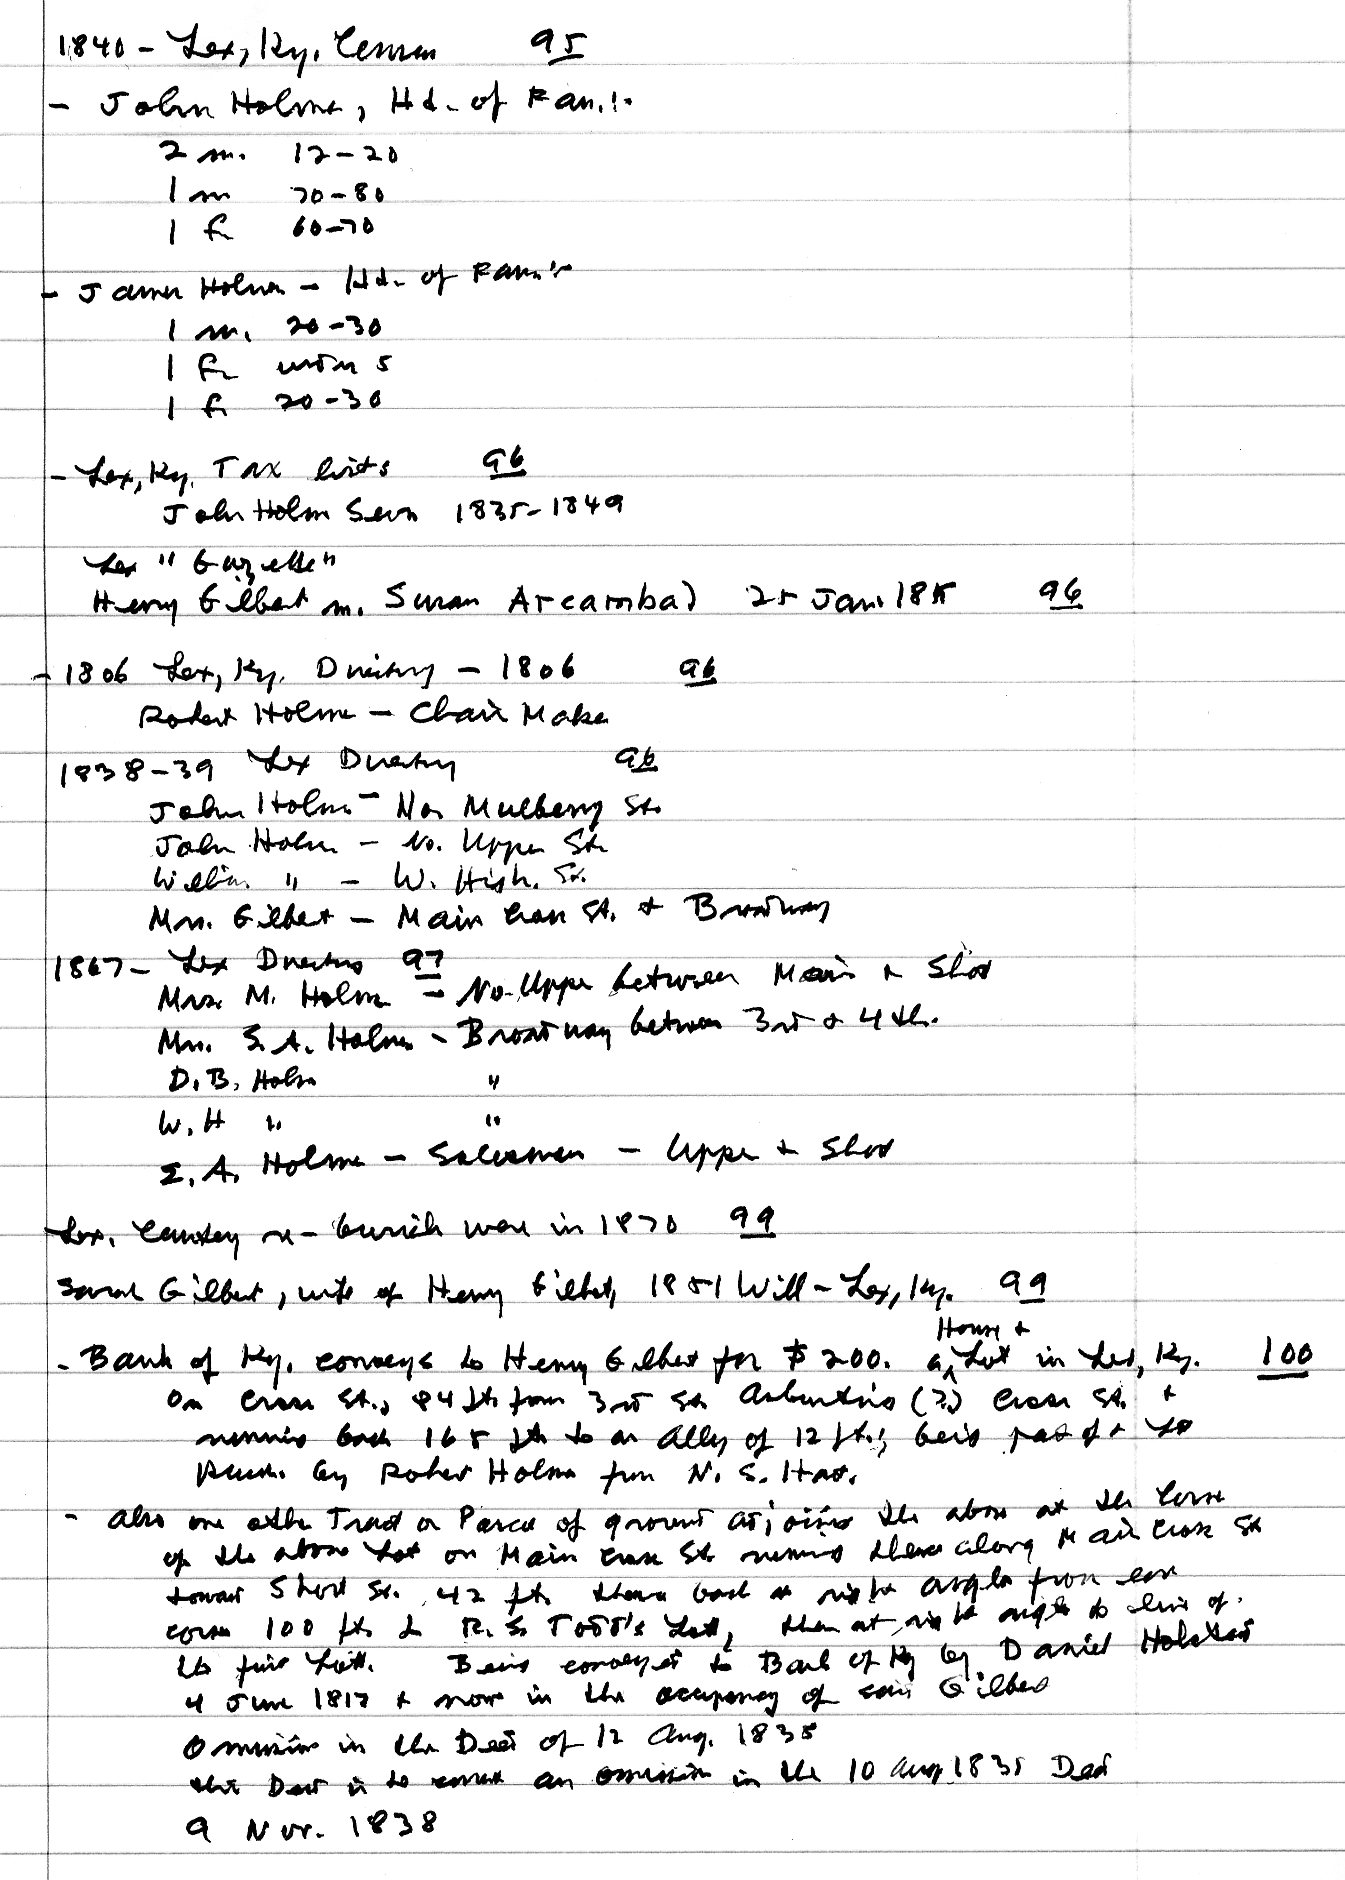 1840 - Lex, Ky. Census 95
- John Holmes, Hd. of Fam.:
2 m. 12-20
1 m 70-80
1 f. 60-70
- James Holmes - Hd. of Fam.:
1 m. 20-30
1 f. under 5
1 f. 20-30
- Lex, Ky. Tax lists 96
John Holmes Seen 1835-1849
Lex "Gazette"
Henry Gilbert m. Susan Arcambal 25 Jan.
96
- 1806 Lex, Ky. Directory - 1806 96
Robert Holmes - Chair Maker
1838-39 Lex Directory 96
John Holmes - No. Mulberry St.
John Holmes - No. Upper St.
William " - W. High. St.
Mrs. Gilbert - Main Cross St. & Broadway
1867 - Lex Directory 97
Mrs. M. Holmes - No. Upper between Main & Short
Mrs. S. A. Holmes - Broadway between 3rd & 4th.
D. B. Holmes "
W. H " "
E. A. Holmes - Salesman - Upper & Short
Lex. Cemetery re-burials were in 1870 99
Sarah Gilbert, wife of Henry Gilbert, 1851 Will - Lex, Ky. 99
House &
- Bank of Ky. conveys to Henry Gilbert for $200. a Lot in Lex, Ky. 100
on Cross St., 84 ft from 3rd St. (?) Cross St. &
running back 165 ft to an Alley of 12 ft.; being part of a Lot
Purch. by Robert Holmes from N. S. Hart.
- also one other Tract or Parcel of ground adjoining the above at the Corner
of the above Lot on Main Cross St running thence along Main Cross St
toward Short St. 42 ft thence back at right angles from
corner 100 ft to R. S. Todd's Lott, then at right angle to line of
the first Lott. Being conveyed to Bank of Ky by Daniel Halstead
4 June 1817 & now in the occupancy of said Gilbert
Omission in the Deed of 12 Aug. 1835
this Deed is to correct an omission in the 10 Aug 1835 Deed
9 Nov. 1838